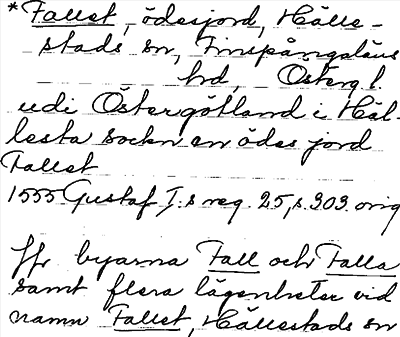 *Fallet, ödesjord, Hälle-
stads sn, Finspångaläns
hd, Österg l.
udi Östergötland i Häl-
lesta sockn en ödes jord
Fallet
1555 Gustaf I:s reg. 25, s. 303 orig
Jfr byarna Fall och Falla
samt flera lägenheter vid
namn Fallet, Hällestads sn